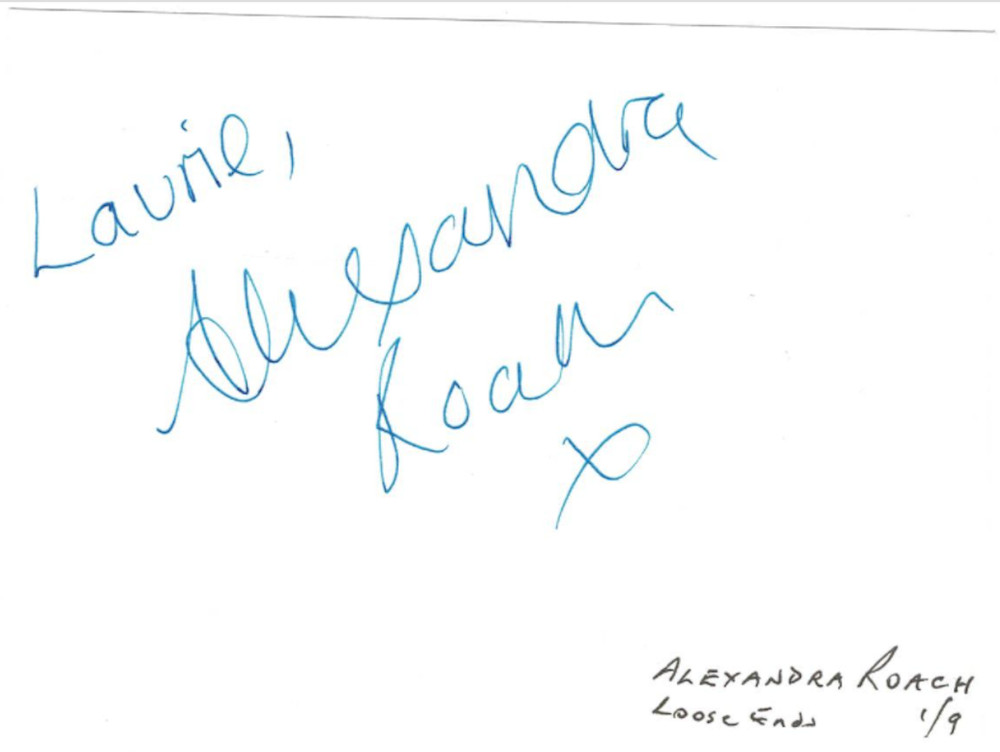 Laurie,
Alexandra
Roach
x
ALEXANDRA ROACH
Loose Ends 1/9